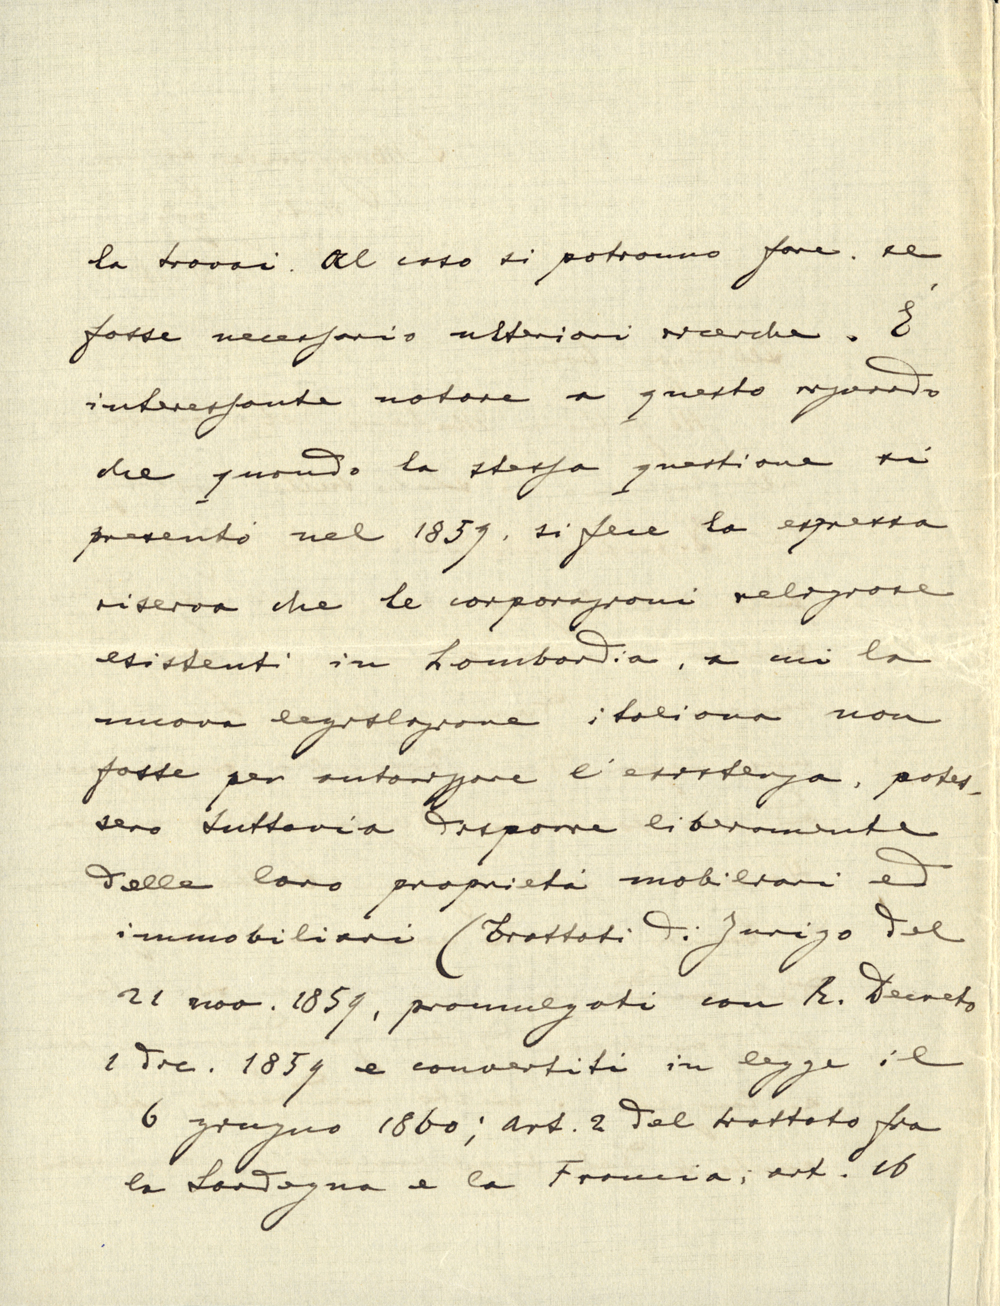 la trovai. Al caso si potranno fare. se
fosse necessario ulteriori ricerche. É
interessante notare a questo riguardo
che quando la stessa questione si
presentó nel 1859, si fece la espressa
riserva che le corporazioni religiose
esistenti in Lombardia, a cui la
nuova legislazione italiana non
fosse per autorizzare l'esistenza, potes-
sero tuttavia disporre liberamente
delle loro proprietá mobiliari ed
immobiliari (Trattati di Zurigo del
21 nov. 1859, promulgati con R. Decreto
1 dic. 1859 e convertiti in legge il
6 giugno 1860; art. 2 del trattato fra
la Sardegna e la Francia; art. 16